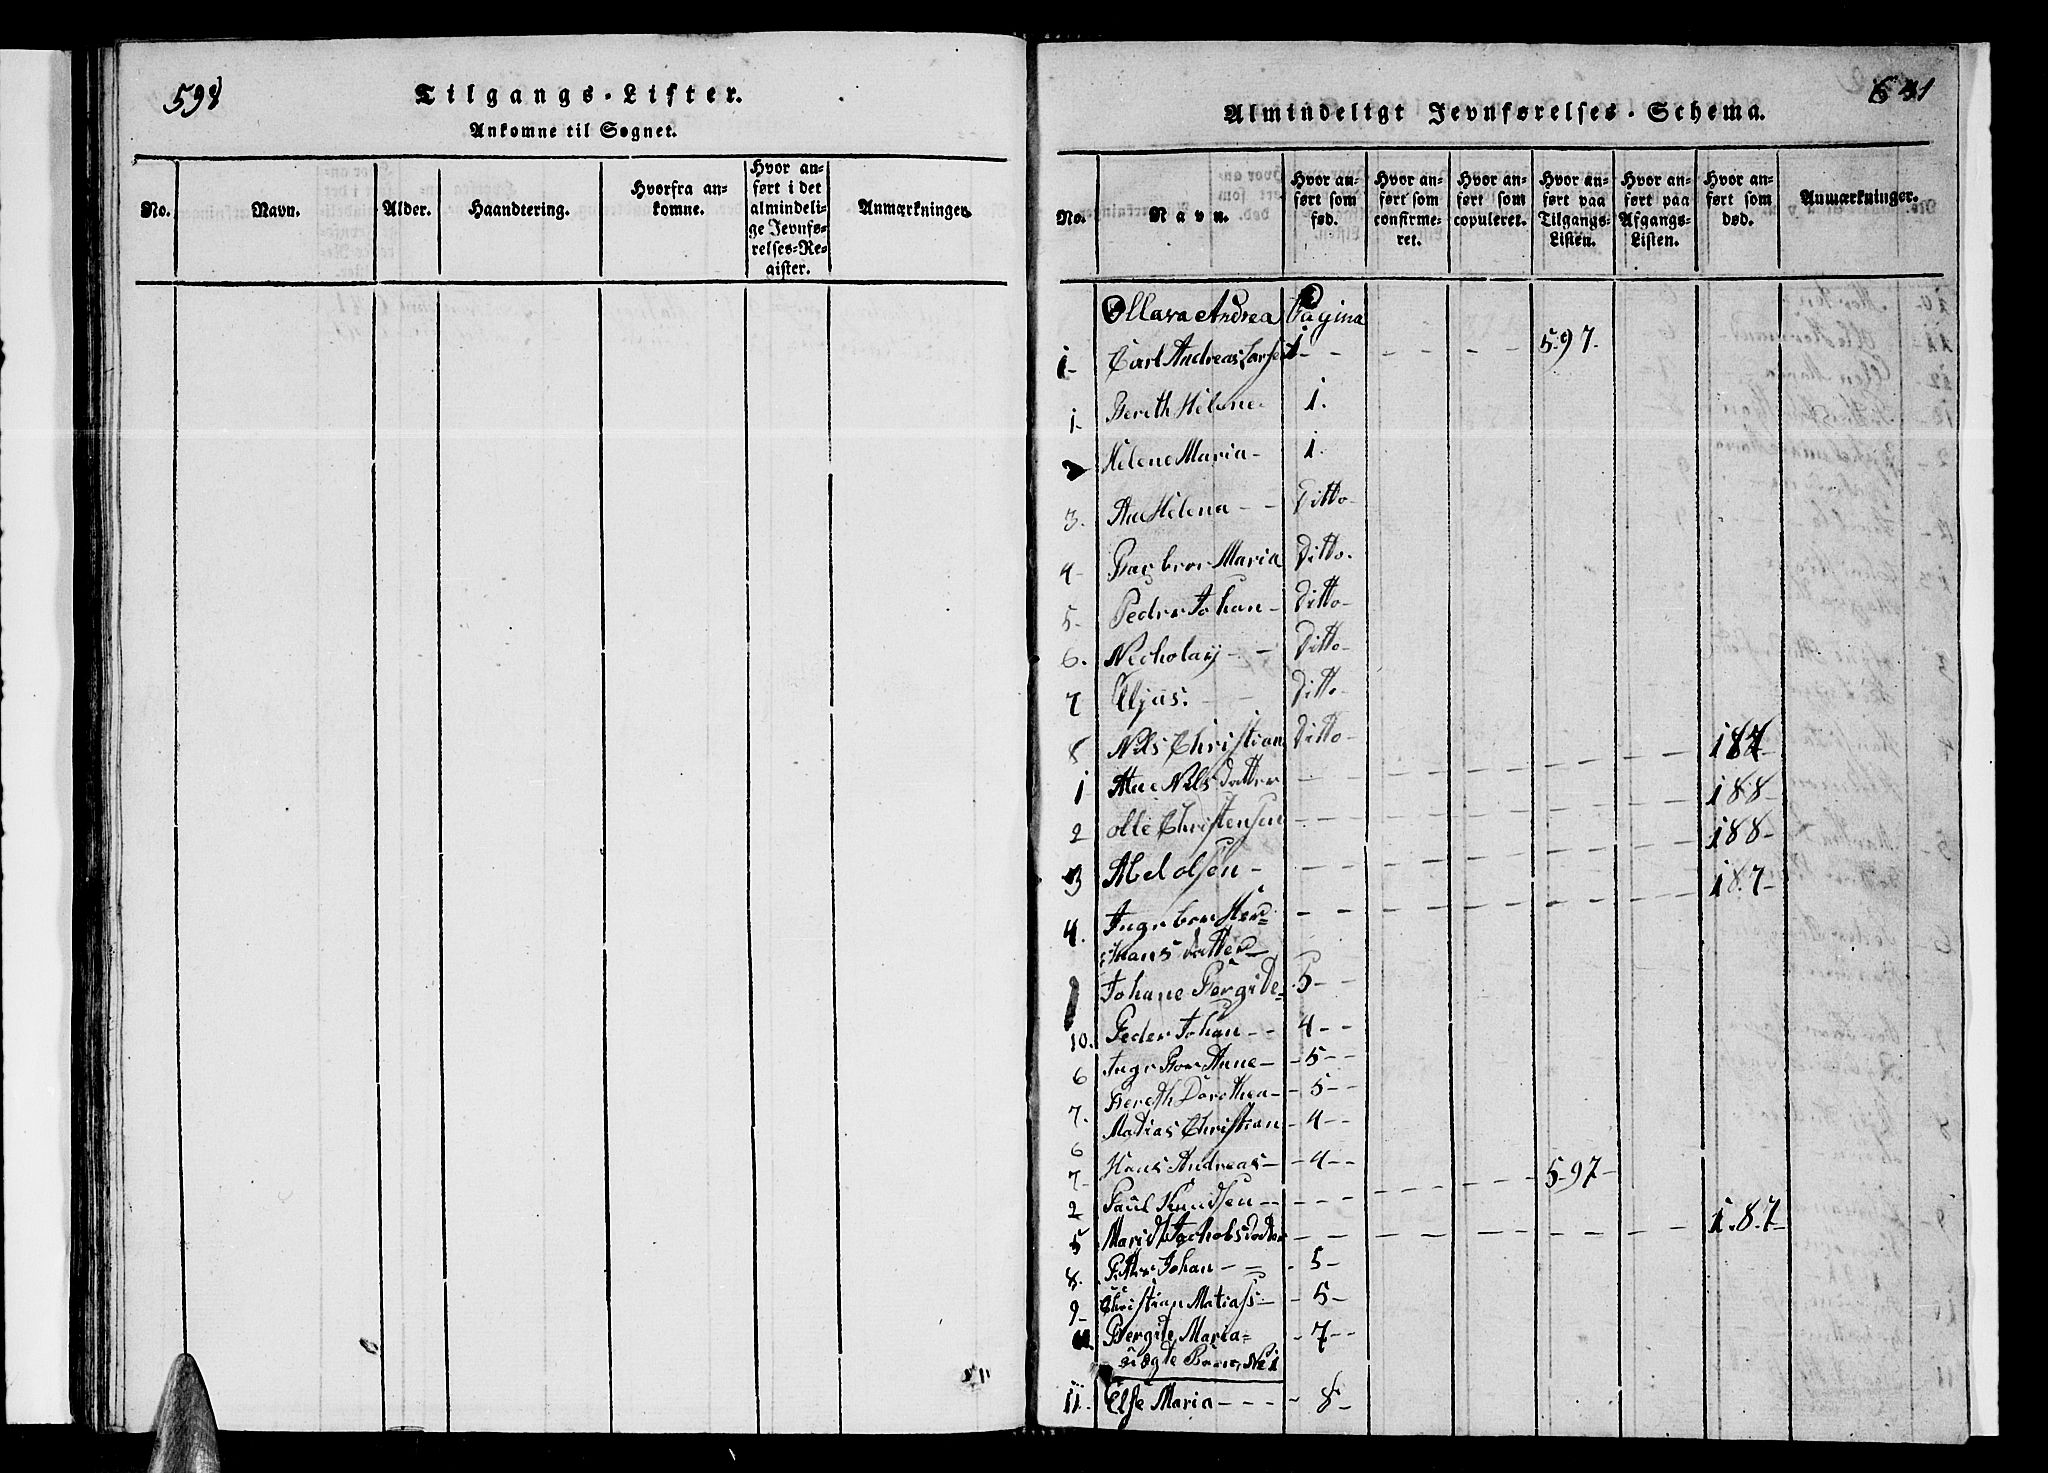 598
Tilgangs-Lister.
Ankomne til Sognet.
No. Navn. Alder. Haandtering. Hvorfra an-
komne. Hvor an-
ført i det
almindeli-
ge Jevnfø-
relses-Re-
gister. Anmærkninger.
Almindeligt Jevnførelses-Schema.
No. Navn. Hvor an-
ført som
fød. Hvor an-
ført som
confirme-
ret. Hvor an-
ført som
copuleret. Hvor an-
ført paa
Tilgangs-
Listen. Hvor an-
ført paa
Afgangs-
Listen. Hvor an-
ført som
død. Anmærkninger.
Ollava Andrea Pagina
1- Carl Andreas Larsen 1 - - - - - 597-
1- Bereth Helene- 1.
2 Helene Maria- 1.
3. Ane Helena - - Ditto-
4- Barbroe Maria Ditto.
5- Peder Johan- Ditto-
6. Necholay - - Ditto-
7 Eljas. Ditto-
8 Nils Christian Ditto-
1 Ane Nils datter - - - - - - 187-
2 olle Christensen - - - - - - 188-
3 Abel olsen - - - - - - 188-
4. Ingebor Her= - - - - - - 187-
mans datter-
Johane Bergite= 5-
10. Peder Johan - - 4 - -
6 Ingebor Anne- - 5 - -
7. Bereth Dorothea- - 5 - -
6 Matias Christian - 4 - -
7- Hans Andreas- - 4 - -
2 Paul Knudsen - - - - - - 597-
5 Marit Jachobsdatter - - - - - - 187-
8. Petter Johan - - - 5-
9- Christian Matiass- - 5-
Bergite Maria= - 7 - -
uægte Barn, No 1
11. Else Maria - - - - 8-